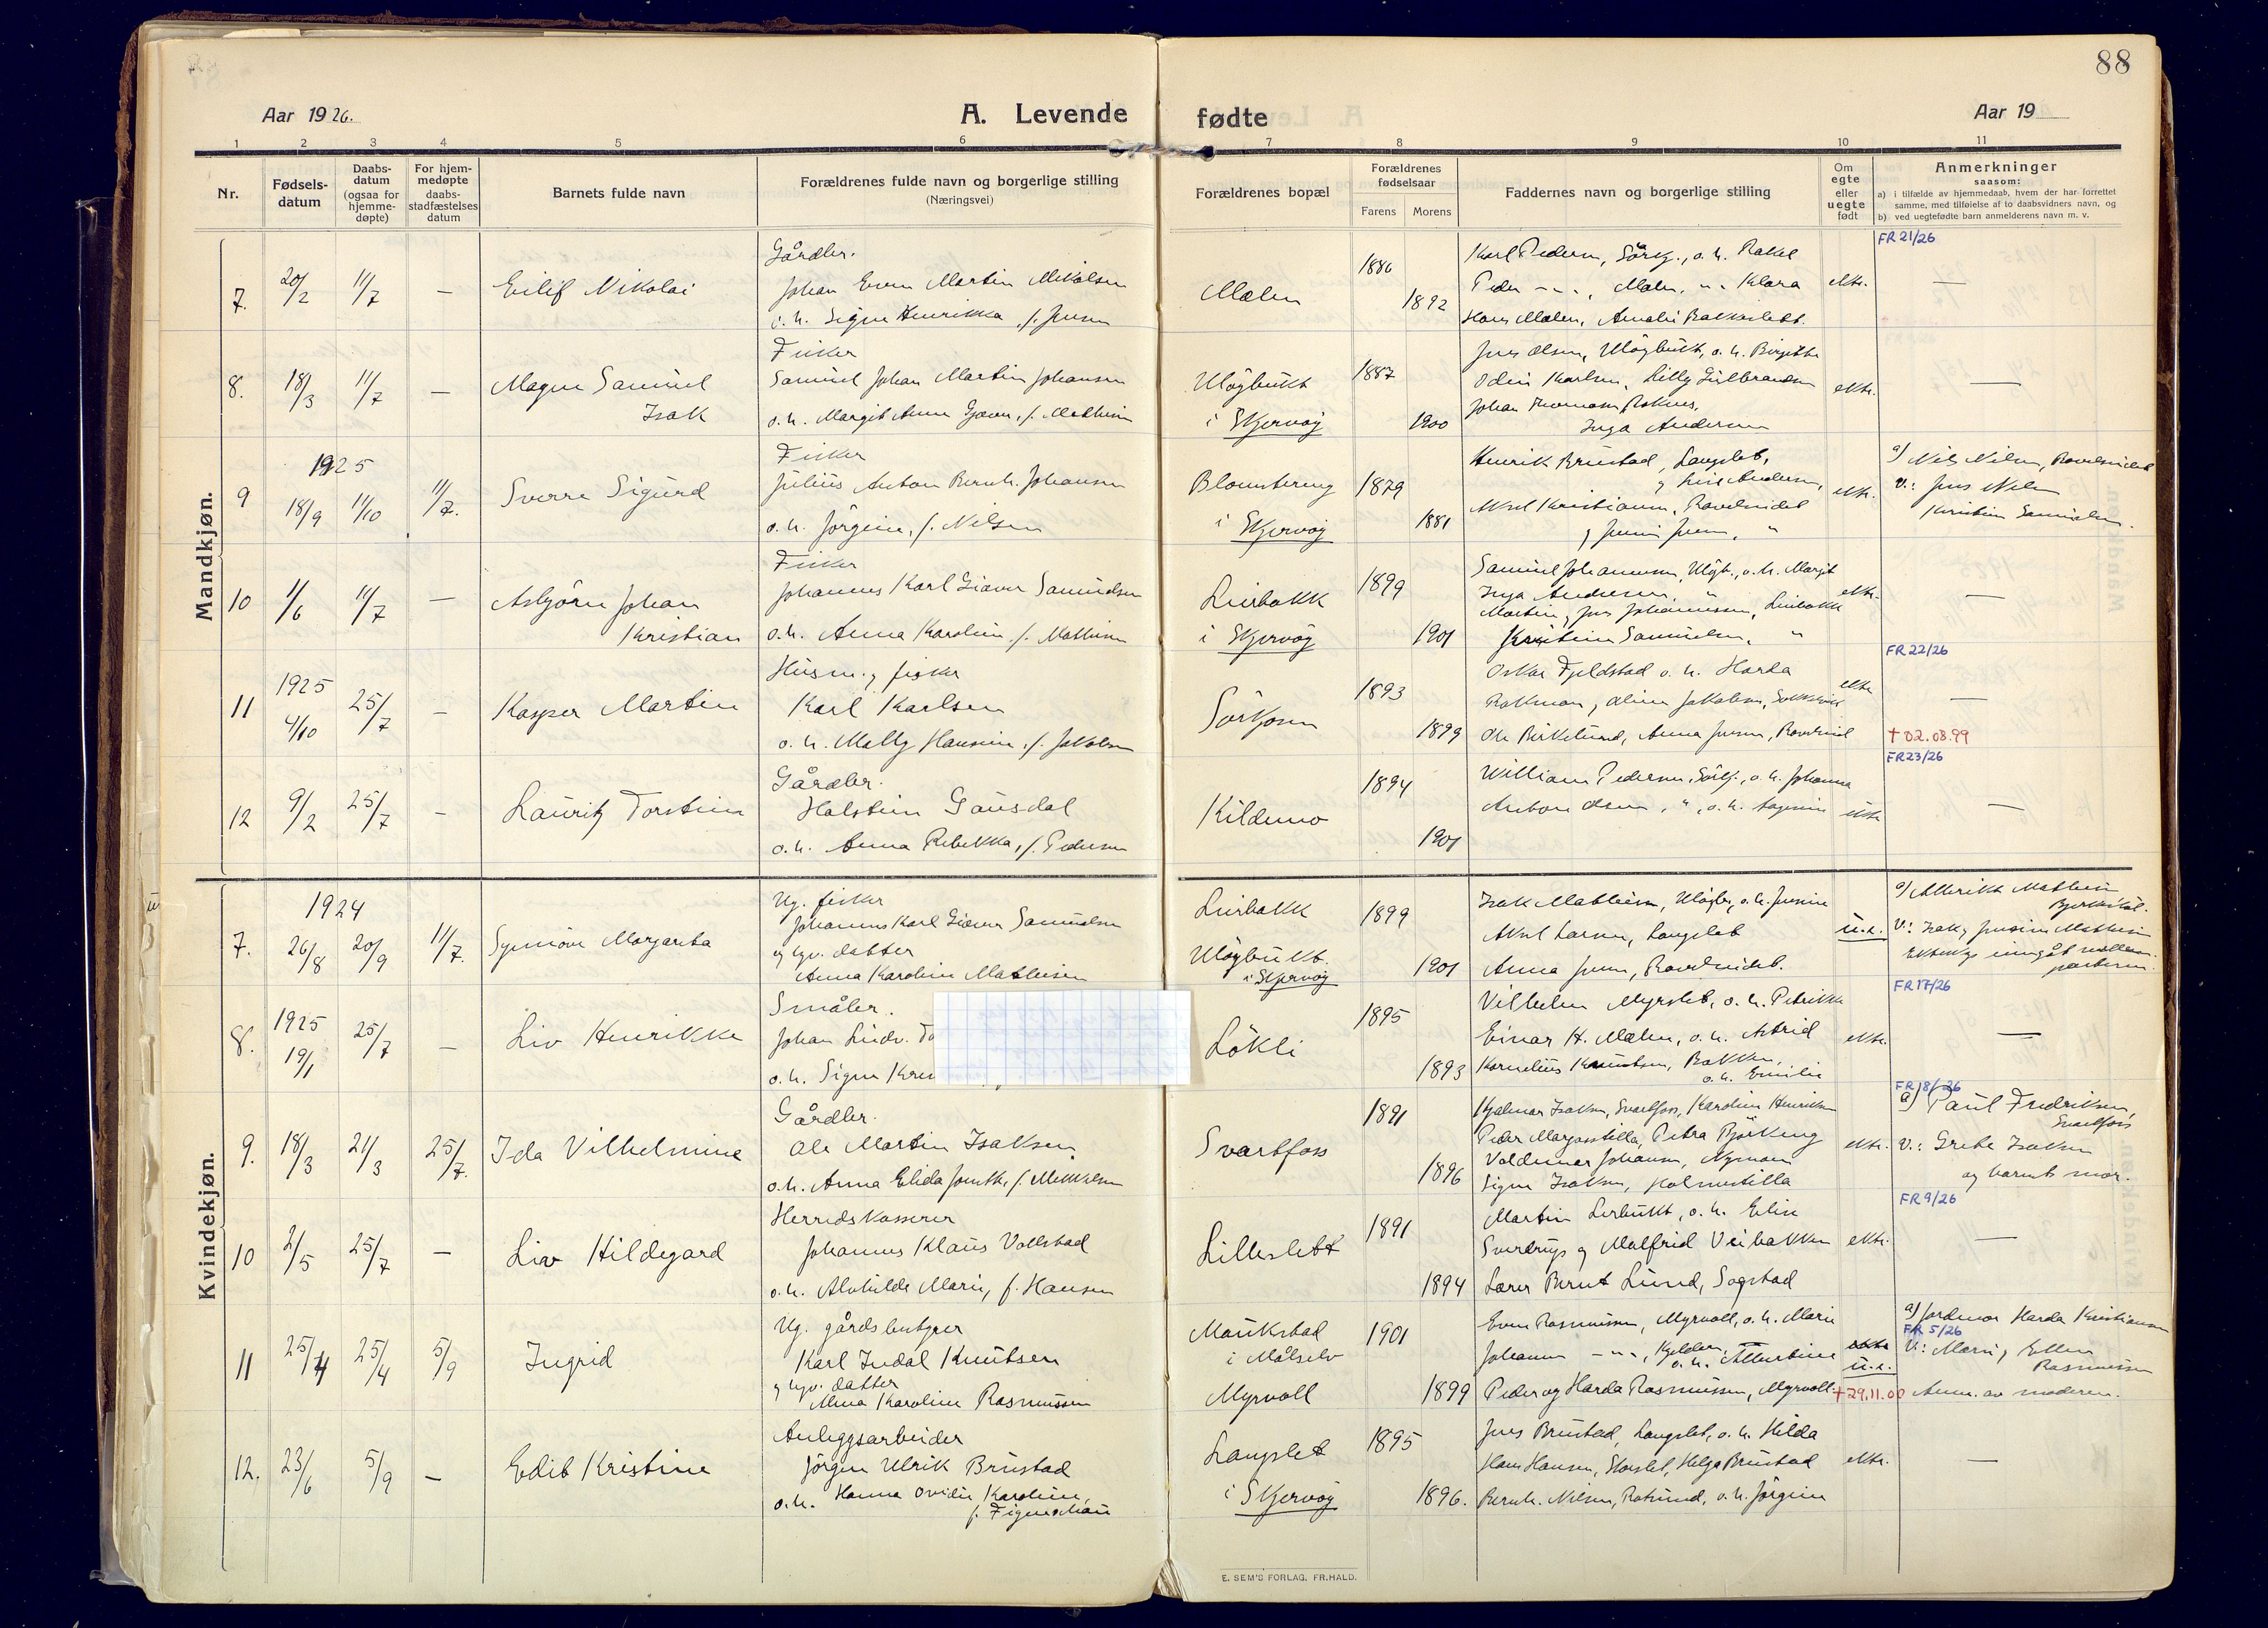 88
Aar 1926.
A. Levende
fødte
Aar 19
1 2 3 4 5 6 7 8 9 10 11
Nr.
Fødsels-
datum
Daabs-
datum
(ogsaa for
hjemme-
døpte)
For hjem-
medøpte
daabs-
stadfæstelses
datum
Barnets fulde navn
Forældrenes fulde navn og borgerlige stilling
(Næringsvei)
Forældrenes bopæl
Forældrenes
fødselsaar
Farens Morens
Faddernes navn og borgerlige stilling
Om
egte
eller
uegte
født
Anmerkninger
saasom:
a) i tilfælde av hjemmedaab, hvem der har forrettet
samme, med tilføielse af to daabsvidners navn, og
b) ved uegtefødte barn anmelderens navn m. v.
Mandkjøn.
7. 20/2 11/7 — Eilif Nikolai
Gårdbr.
Johan Even Martin Mikalsen
o. h. Signe Henrikka, f. Jensen
Mælen
1886
1892
Karl Pedersen, Sörkj., o. h. Rakel
Peder -"-, Mælen, "- Klara
Hans Mælen, Amalie Bakkeslett.
ekte.
FR 21/26
—
8. 18/3 11/7 — Magne Samuel
Isak
Fisker
Samuel Johan Martin Johansen
o. h. Margit Anna Gjæver, f. Mathisen
Ulögbukt
i Skjervöy
1887
1900
Jens Olsen, Ulögbukt, o. h. Birgitte
Odin Karlsen, Lilly Gulbrandsen
Inga Andersen
ekte.
—
9 1925
18/9 11/10 11/7. Sverre Sigurd
Fisker
Julius Anton Bernh. Johansen
o. h. Jörgine, f. Nilsen
Blomstereng
i Skjervöy
1879
1881
Henrik Brustad, Langslet,
Aksel Kristiansen, Ravelseidet
ekte.
a) Nils Nilsen, Ravelseidet
v.: Jens Nilsen
Kristine Samuelsen.
10 1/6 11/7 — Asbjörn Johan
Kristian
Fisker
Johannes Karl Giæver Samuelsen
o. h. Anna Karoline, f. Mathisen
Leirbakk
i Skjervöy
1899
1901
Samuel Johannesen, Ulögb., o. h. Margit
Inga Andersen, "
Martin, Jens Johannessen, Leirbakk
Kristine Samuelsen, "
ekte.
—
11 1925
4/10 25/7 — Kasper Martin
Husm. & fisker
Karl Karlsen
o. h. Molly Hansine, f. Jakobsen
Sörkjosen
1893
1899
Oskar Fjeldstad o. h. Harda
Ole Birkelund, Anna Jensen, Ravelseid
ekte
FR 22/26
—
† 02.08.99
12 9/2 25/7 — Lauritz Torstein
Gårdbr.
Halstein Gausdal
o. h. Anna Rebekka, f. Pedersen
Kildemo
1894
1901
William Pedersen, Sörkj., o. h. Johanna
Anton Olsen, ", o. h. Hagenine
ekte
FR 23/26
—
Kvindekjøn.
7. 1924
26/8 20/9 11/7. Synnöve Margareta
Ug. fisker
Johannes Karl Giæver Samuelsen
og ugv. datter
Anna Karoline Mathisen
Leirbakk
Ulögbukt.
i Skjervöy
1899
1901
Isak Mathisen, Ulögb., o. h. Jensine
Aksel Larsen, Langslet
Anna Jensen, Ravelseidet.
u.e.
v.: Isak & Jensine Mathisen
Ekteskap inngåt mellem
parterne.
8. 1925
19/1 25/7 — Liv Henrikke
Småbr.
Johan Ludv.
o. h. Signe
Lökli
1895
1893
Vilhelm Myrslet, o. h. Petrikke
Einar H. Mælen, o. h. Astrid
Kornelius Knutsen, Bakken,
o. h. Emilie
ekte.
FR 17/26
—
9. 18/3 21/3 25/7. Ida Vilhelmine
Gårdbr.
Ole Martin Isaksen
o. h. Anna Elida Jonette, f. Mikkelsen
Svartfoss
1891
1896
Hjalmar Isaksen, Svartfoss, Karoline Henriksen
Peder Margosstilla, Petra Björkeng
Valdemar Johansen, Nymoen
Signe Isaksen, Holmestilla
ekte.
FR 18/26
a) Paul Fredriksen,
Svartfoss
v.: Grete Isaksen
og barnets mor.
10 2/5 25/7 — Liv Hildegard
Herredskasserer
Johannes Klaus Vollstad
o. h. Alvhilde Marie, f. Hansen
Lilleslett
1891
1894
Martin Lerbukt, o. h. Elise
Sverdrup og Malfrid Veibakken
Lærer Bernt Lund, Sogstad
ekte.
FR 9/26
—
11 25/4 25/4 5/9 Ingrid
Ug. gårdsbestyrer
Karl Indal Knutsen
og ugv. datter
Alma Karoline Rasmussen
Maukstad
i Målselv
Myrvoll
1901
1899
Even Rasmussen, Myrvoll, o. h. Marie
Johannes -"-, Kjelderen, o. h. Albertine
Peder og Harda Rasmussen, Myrvoll.
ekte
u.e.
† 29.11.00
a) Jordmor Harda Kristiansen
FR 5/26
v.: Marie & Ellen
Rasmussen
Anm. av moderen.
12. 23/6 5/9 — Edit Kristine
Anleggsarbeider
Jörgen Ulrik Brustad
o. h. Hanna Ovidie Karoline,
f. Figenschau
Langslet
i Skjervöy
1895
1896.
Jens Brustad, Langslet, o. h. Hilda
Hans Hansen, Storslet, Helga Brustad
Bernh. Nilsen, Rotsund, o. h. Jörgine
ekte.
—
E. SEM'S FORLAG, FR.HALD.